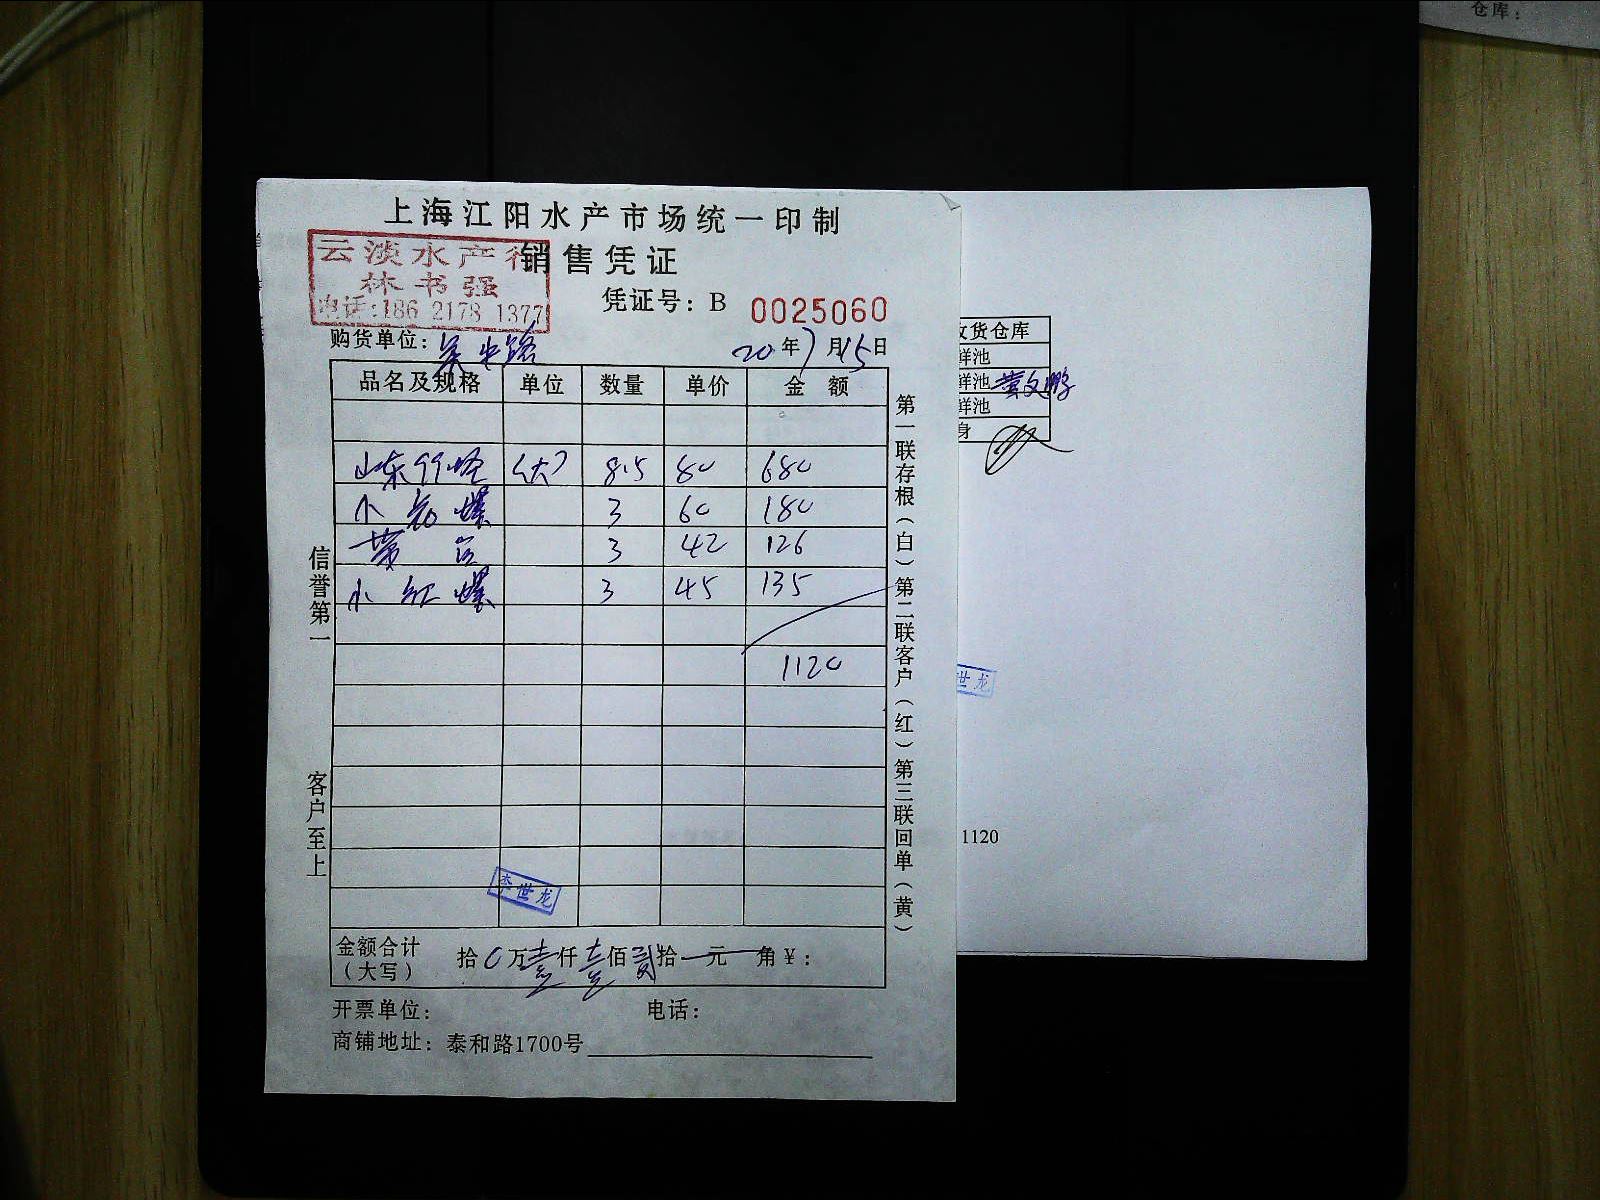 仓库：
上海江阳水产市场统一印制
云淡水产行
林书强
电话：186 2178 1377
销售凭证
凭证号：B 0025060
购货单位：吴中路
20 年 7 月 15 日
品名及规格 单位 数量 单价 金额
山东 (大) 8.5 80 680
小 螺 3 60 180
3 42 126
小红螺 3 45 135
1120
金额合计（大写） 拾 0 万 壹 仟 壹 佰 贰 拾 元 角 ¥：
李世龙
开票单位： 电话：
商铺地址：泰和路1700号
信誉第一
客户至上
第一联存根（白）第二联客户（红）第三联回单（黄）
收货仓库
鲜池
鲜池 黄文鹏
鲜池
身
世龙
1120